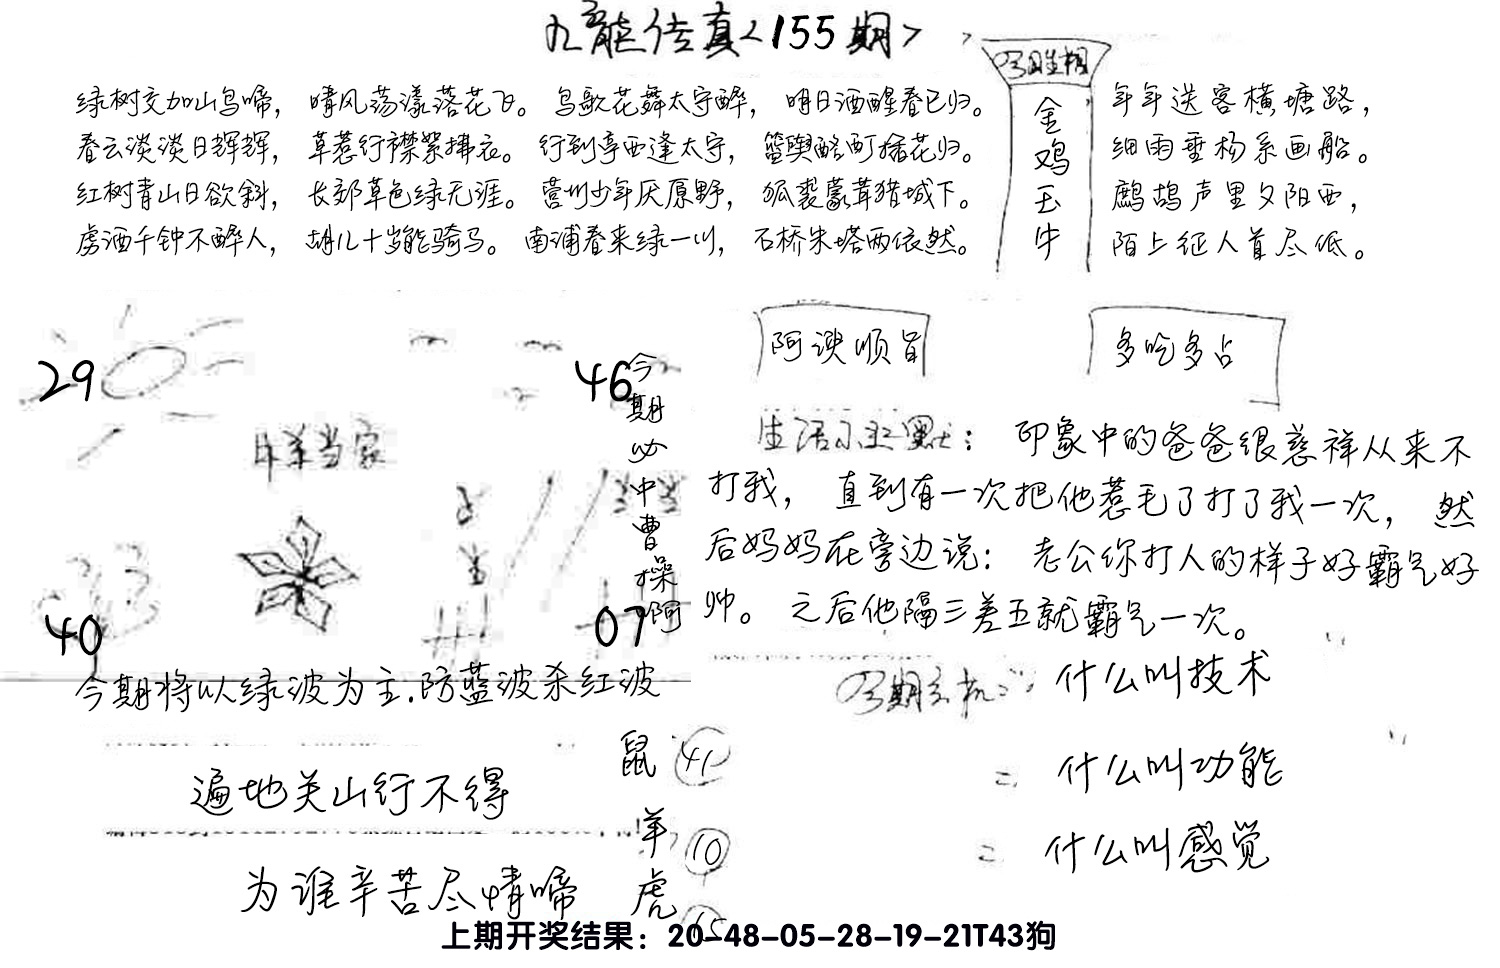 九龍传真<155期>
绿树交加山鸟啼， 晴风荡漾落花飞。 鸟歌花舞太守醉， 明日酒醒春已归。
春云淡淡日辉辉， 草惹行襟絮拂衣。 行到亭西逢太守， 篮舆酩酊插花归。
红树青山日欲斜， 长郊草色绿无涯。 营州少年厌原野， 狐裘蒙茸猎城下。
虏酒千钟不醉人， 胡儿十岁能骑马。 南浦春来绿一川， 石桥朱塔两依然。
金鸡玉牛
年年送客横塘路，
细雨垂杨系画船。
鹧鸪声里夕阳西，
陌上征人首尽低。
29
46
40
07
今期必中曹操阿
阿谀顺旨
多吃多占
生活小幽默： 印象中的爸爸很慈祥从来不
打我， 直到有一次把他惹毛了打了我一次， 然
后妈妈在旁边说： 老公你打人的样子好霸气好
帅。 之后他隔三差五就霸气一次。
今期将以绿波为主.防蓝波杀红波
什么叫技术
= 什么叫功能
= 什么叫感觉
遍地关山行不得
为谁辛苦尽情啼
鼠 41
羊 10
虎 15
上期开奖结果：20-48-05-28-19-21T43狗